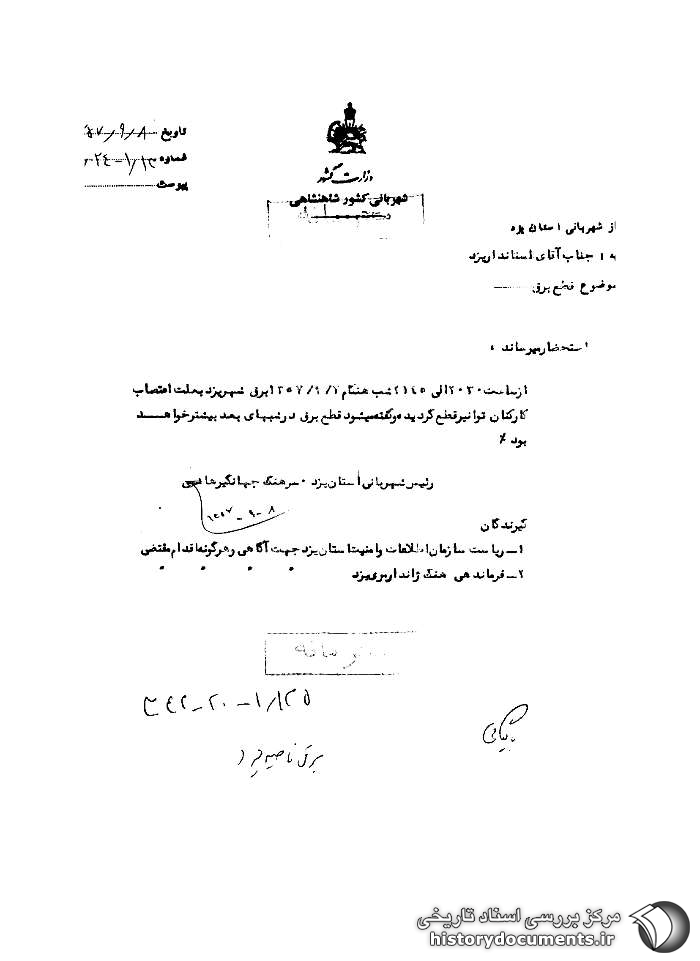 تاریخ ۵۷/۹/۸
شماره
پیوست
وزارت کشور
شهربانی کشور شاهنشاهی
از شهربانی استان یزد
به : جناب آقای استاندار یزد
موضوع قطع برق
استحضار میرساند :
از ساعت ۲۰۳۰ الی ۲۱۴۵ شب هنگام ۱۳۵۷/۹/۷ برق شهر یزد بعلت اعتصاب
کارکنان توانیر قطع گردیده و گفته میشود قطع برق در شبهای بعد بیشتر خواهد
بود ٪
رئیس شهربانی استان یزد . سرهنگ جهانگیر
۱۳۵۷-۹-۸
گیرندگان
۱ـ ریاست سازمان اطلاعات و امنیت استان یزد جهت آگاهی و هرگونه اقدام مقتضی
۲ـ فرماندهی هنگ ژاندارمری یزد
بایگانی
مرکز بررسی اسناد تاریخی
historydocuments.ir